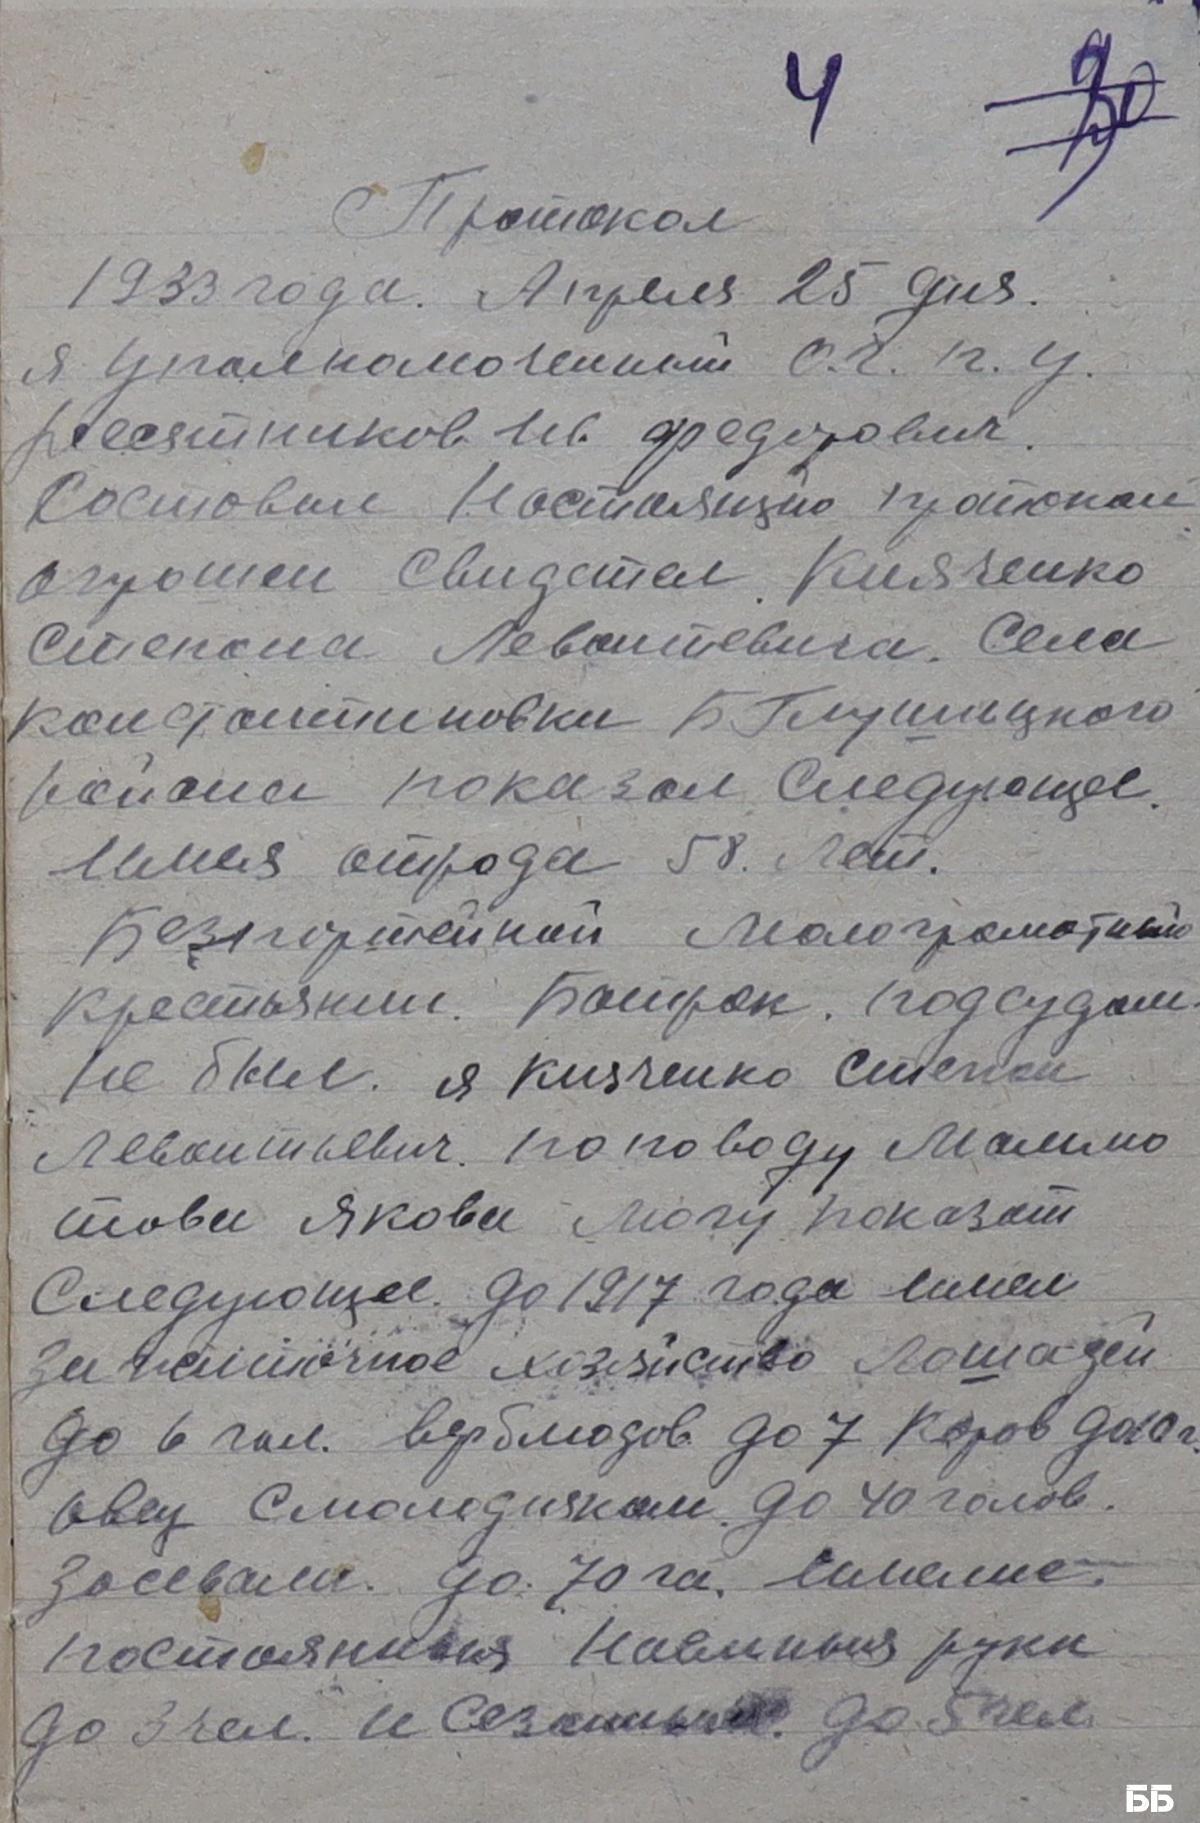 4
Протокол
1933 года. Апреля 25 дня.
я Уполномоченный О.Г.П.У.
Ив федорович.
Состовил Настоящию протокол
опрошен Свидетел Княченко
Степона Левонтевича. Села
Константиновки Б Глушицкого
района показал Следующее.
Имия отрода 58. Лет.
Безпортейной Молограмотный
крестьянин. Батрак. подсудом
не был. я Княченко Степон
Левонтьевич. по поводу Малимо
това Якова Могу показат
Следующее. до 1917 года имел
Зажиточное хозяйство Лошадей
до 6 гол. верблюдов до 7 Коров до 10 г.
овец Смолодняком до 40 голов.
Засевали. до. 70 га. имелис.
постоянныя Наемныя руки
до 3 чел. и Сезонный. до 5 чел
ББ